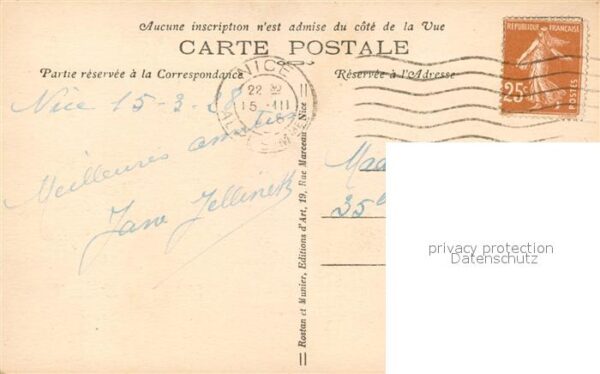 Aucune inscription n'est admise du côté de la Vue
CARTE POSTALE
Partie réservée à la Correspondance
Réservée à l'Adresse
NICE
22
15 · III
RÉPUBLIQUE FRANÇAISE
25c
POSTES
Nice 15-3-28
Meilleures amitiés
Jellinek
Rostan et Munier, Editions d'Art, 19, Rue Marceau, Nice
Mad
35
privacy protection
Datenschutz